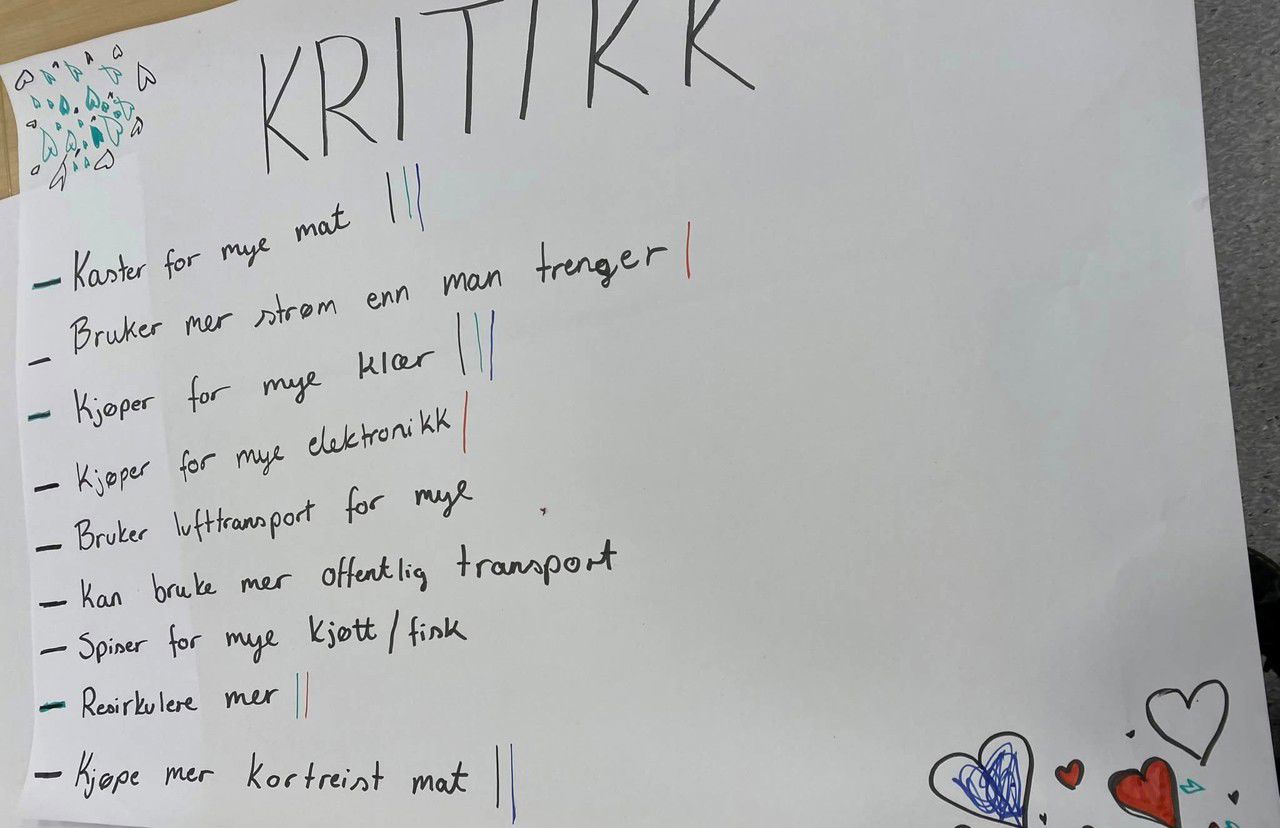 KRITIKK
- Kaster for mye mat |||
- Bruker mer strøm enn man trenger |
- Kjøper for mye klær |||
- Kjøper for mye elektronikk |
- Bruker lufttransport for mye
- Kan bruke mer offentlig transport
- Spiser for mye kjøtt/fisk
- Resirkulere mer ||
- Kjøpe mer kortreist mat ||